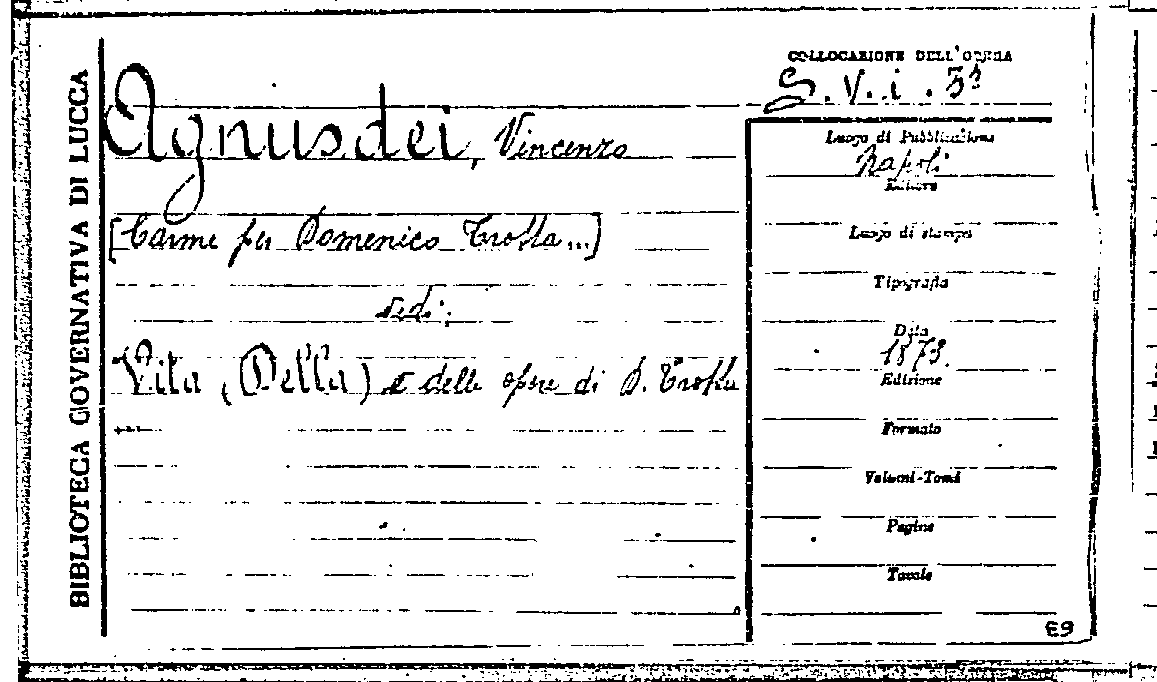 BIBLIOTECA GOVERNATIVA DI LUCCA
Agnusdei, Vincenzo
[Carme per Domenico Trotta...]
vedi:
Vita (Della) e delle opere di D. Trotta
...
COLLOCAZIONE DELL'OPERA
S. V. i.
Luogo di Pubblicazione
Napoli
Editore
Luogo di stampa
Tipografia
Data
1873.
Edizione
Formato
Volumi-Tomi
Pagine
Tavole
E9